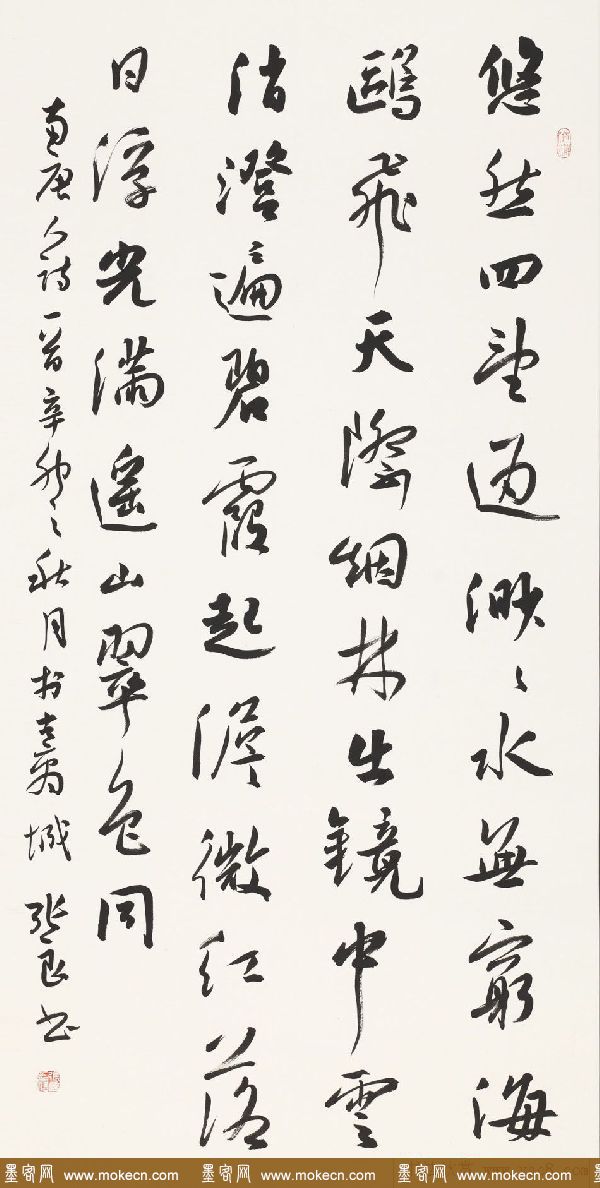 悠然四望通渺々水無窮海
鷗飛天際烟林出鏡中雲
消澄遍碧霞起澹微紅落
日浮光滿遙山翠色同
唐人詩一首辛卯之秋月於城 張良書
墨客网 www.mokecn.com 墨客网 www.mokecn.com 墨客网 www.mokecn.com